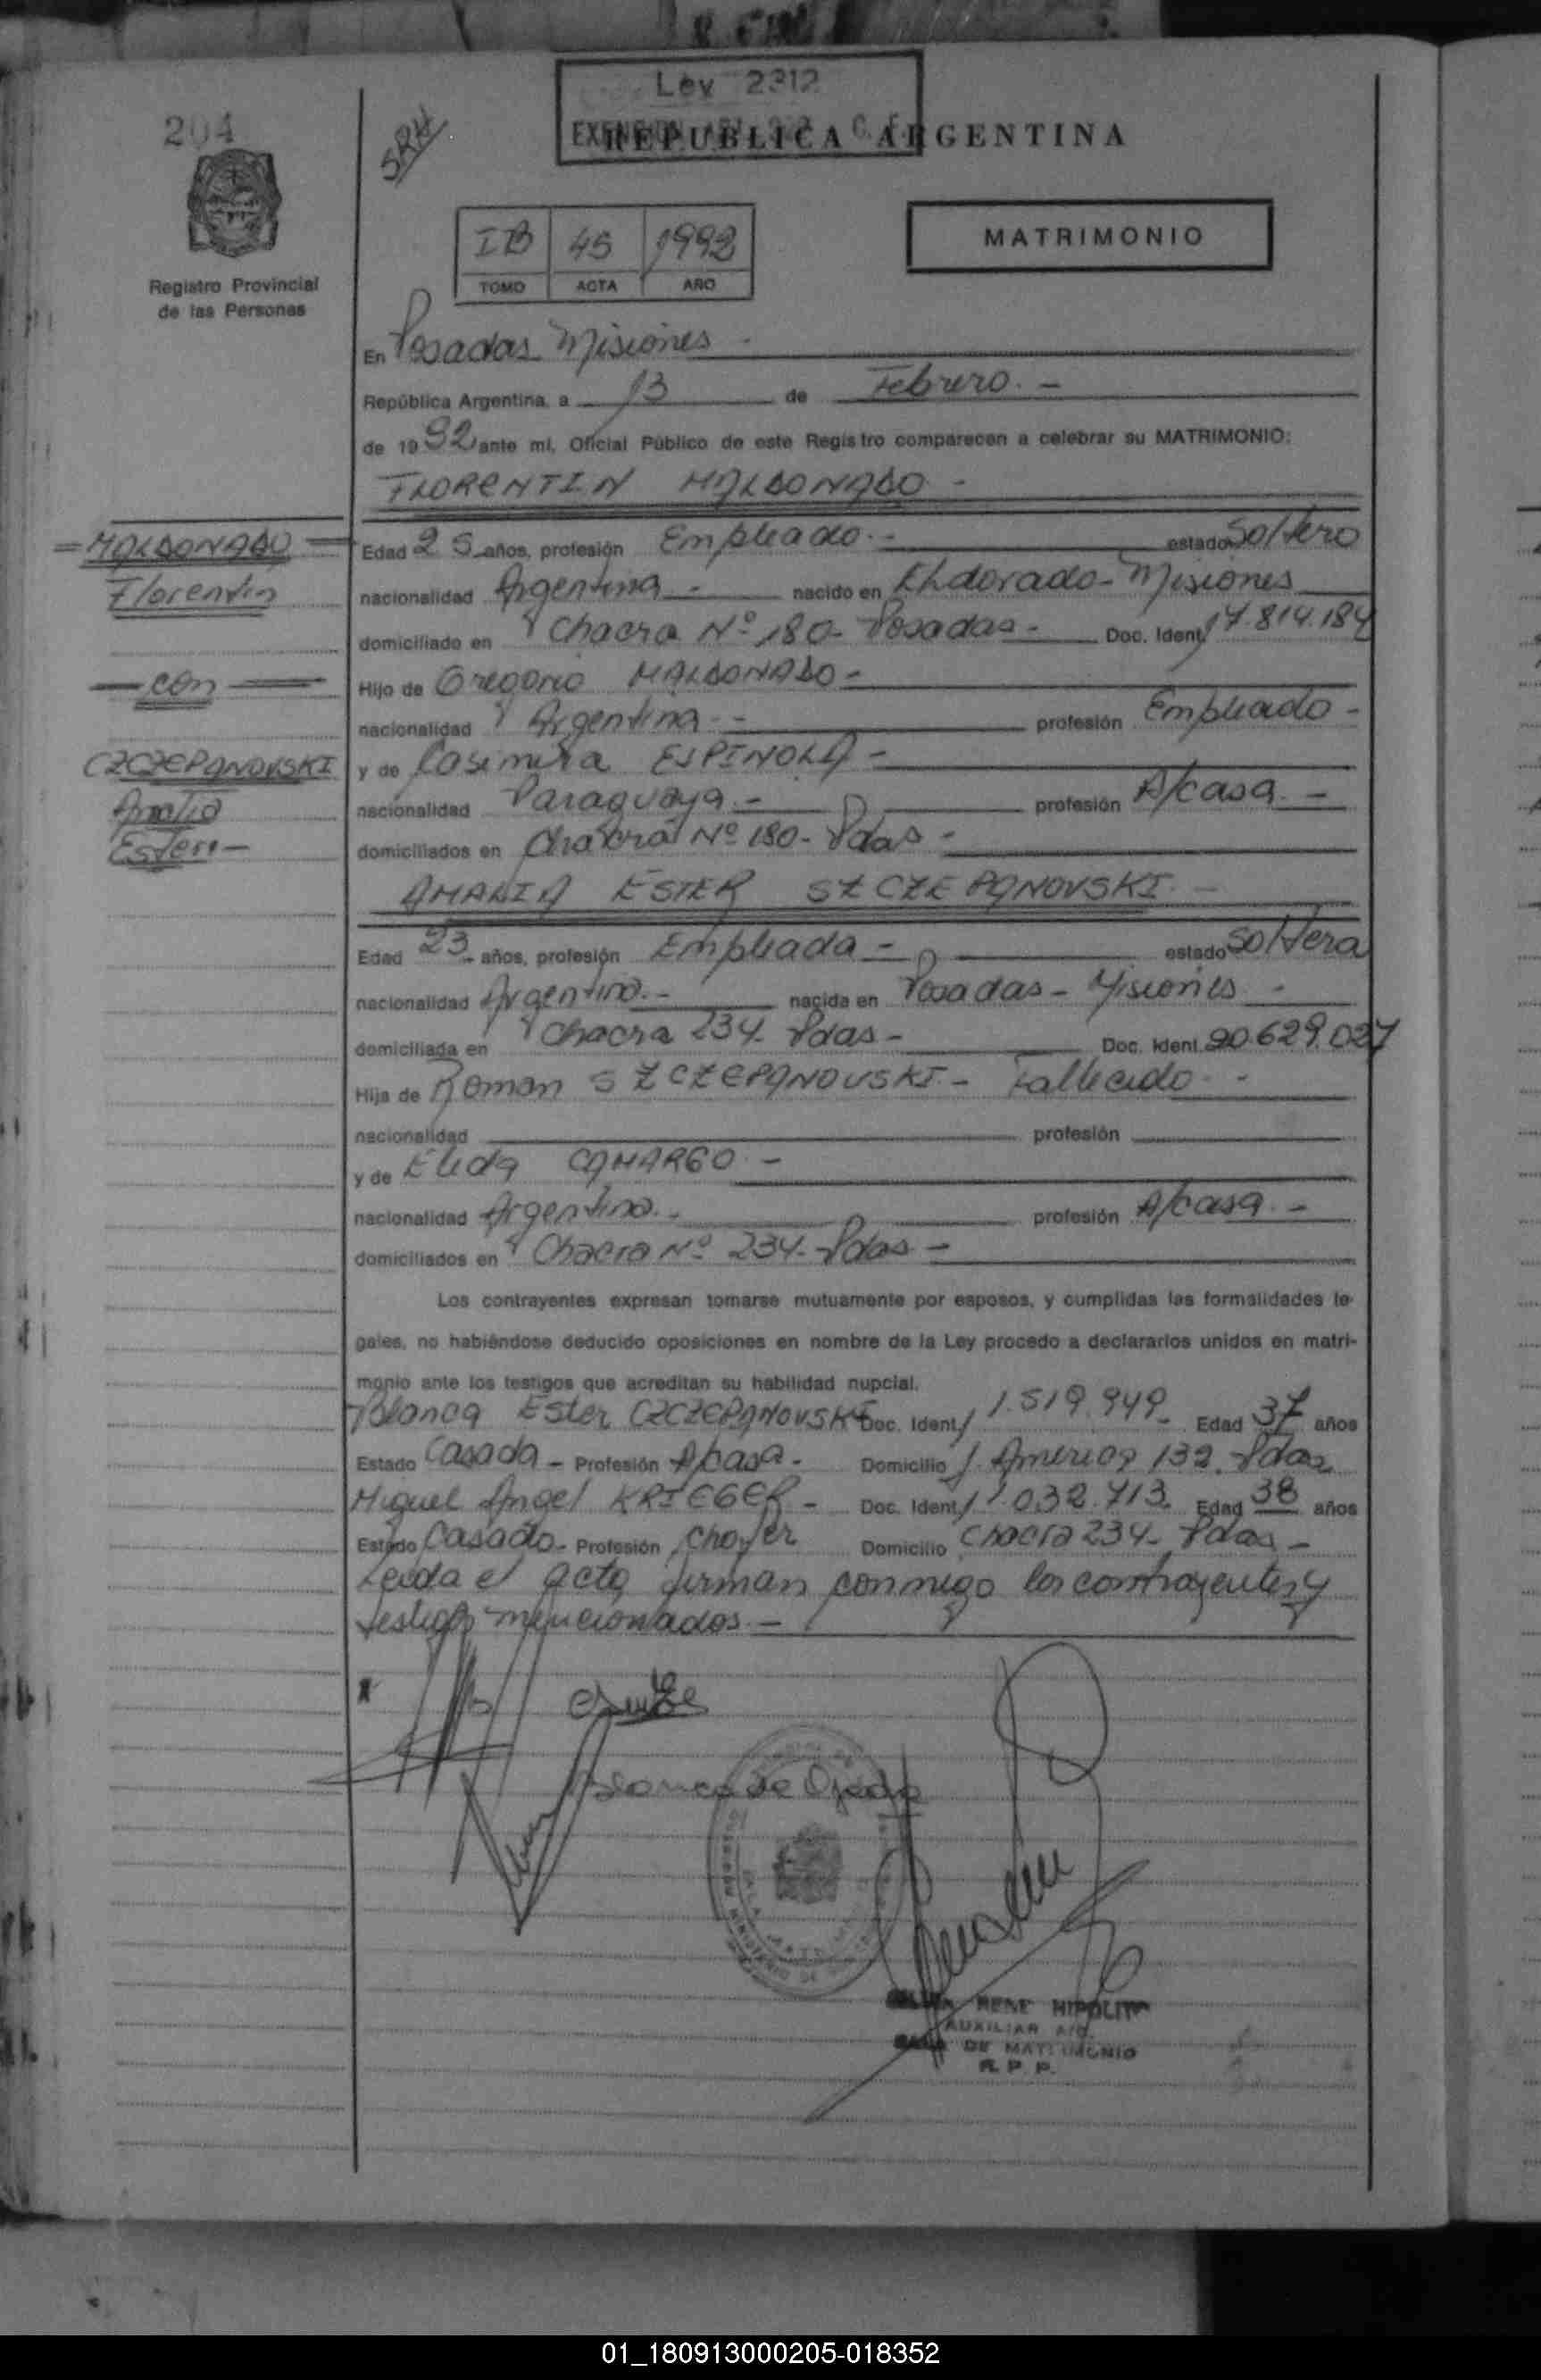 Ley 2312
204
SRH
REPUBLICA ARGENTINA
IB 45 1992
TOMO ACTA AÑO
MATRIMONIO
Registro Provincial
de las Personas
En Posadas Misiones -
República Argentina, a 13 de Febrero. -
de 1992 ante mi, Oficial Público de este Registro comparecen a celebrar su MATRIMONIO:
FLORENTIN MALDONADO -
= MALDONADO =
Florentin
— con —
CZCZEPANOVSKI
Amalia
Ester. -
Edad 25 años, profesión Empleado. - estado Soltero
nacionalidad Argentina - nacido en Eldorado - Misiones
domiciliado en Chacra Nº 180 - Posadas - Doc. Ident. 17.814.184
Hijo de Gregorio MALDONADO -
nacionalidad Argentina - profesión Empleado -
y de Casimira ESPINOLA -
nacionalidad Paraguaya - profesión A/casa. -
domiciliados en Chacra Nº 180 - Pdas -
AMALIA ESTER SZCZEPANOVSKI. -
Edad 23 años, profesión Empleada - estado Soltera
nacionalidad Argentina. - nacida en Posadas - Misiones -
domiciliada en Chacra 234. Pdas - Doc. Ident. 20.629.027
Hija de Roman SZCZEPANOVSKI - Fallecido -
nacionalidad profesión
y de Elida CAMARGO -
nacionalidad Argentina. - profesión A/casa. -
domiciliados en Chacra Nº 234 - Pdas -
Los contrayentes expresan tomarse mutuamente por esposos, y cumplidas las formalidades le-
gales, no habiéndose deducido oposiciones en nombre de la Ley procedo a declararlos unidos en matri-
monio ante los testigos que acreditan su habilidad nupcial.
Blanca Ester CZCZEPANOVSKI Doc. Ident. 11.519.949 - Edad 37 años
Estado Casada - Profesión A/casa - Domicilio J. America 132. Pdas
Miguel Angel KRIEGER - Doc. Ident. 11.032.713 Edad 38 años
Estado Casado - Profesión Chofer Domicilio Chacra 234 - Pdas -
Leida el acta firman conmigo los contrayentes y
testigos mencionados. -
Blanca de Ojeda
RENE HIPOLITO
AUXILIAR A/C.
SALA DE MATRIMONIO
R. P. P.
01_180913000205-018352